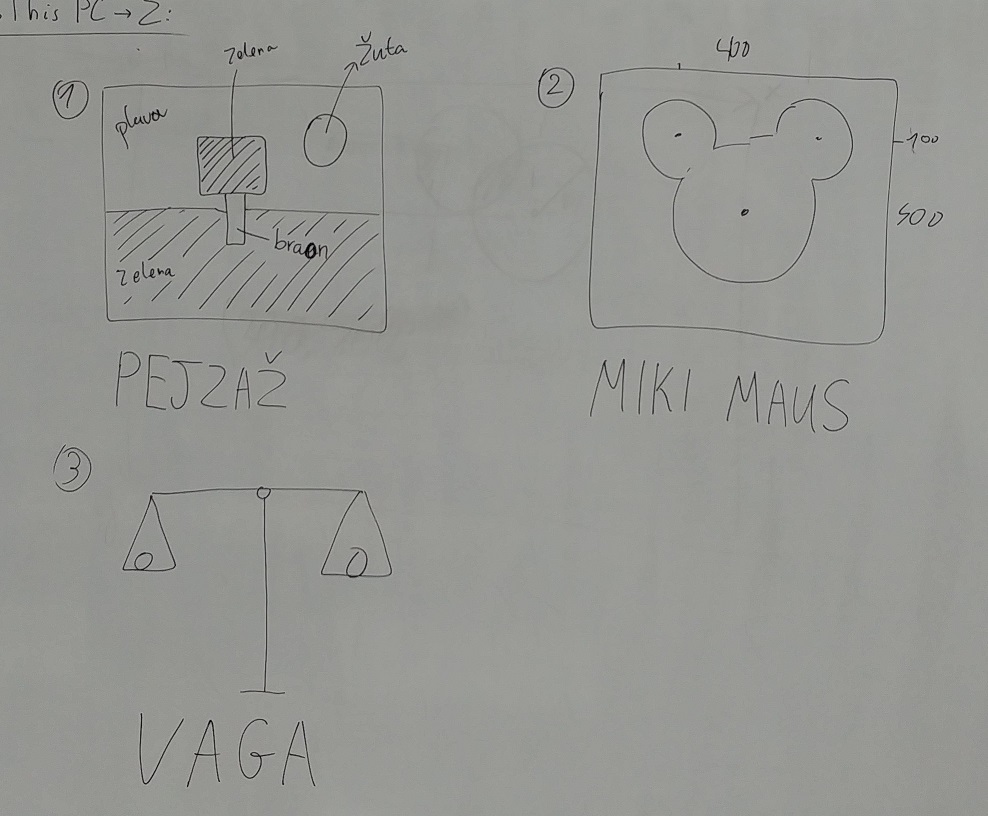 This PC → Z:
zelena
Žuta
① plava
braon
zelena
PEJZAŽ
② 400
100
500
MIKI MAUS
③
VAGA